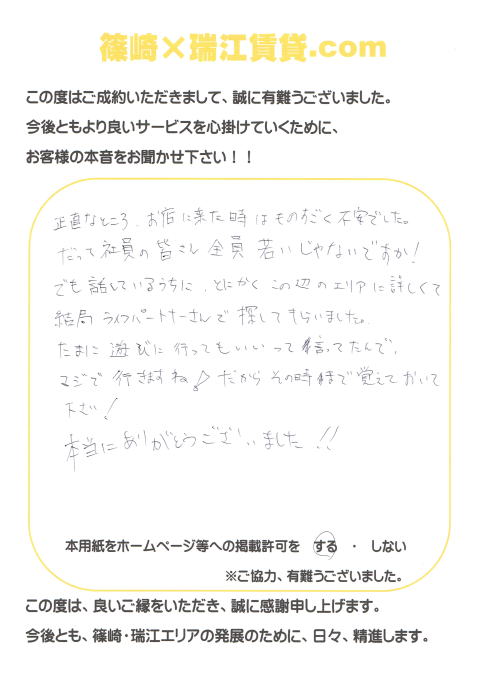 篠崎×瑞江賃貸.com
この度はご成約いただきまして、誠に有難うございました。
今後ともより良いサービスを心掛けていくために、
お客様の本音をお聞かせ下さい！！
正直なところ、お店に来た時はものすごく不安でした。
だって社員の皆さん全員若いじゃないですか!
でも話しているうちに、とにかくこの辺のエリアに詳しくて
結局ライフパートナーさんで探してもらいました。
たまに遊びに行ってもいいって言ってたんで、
マジで行きますね♪だからその時まで覚えておいて
下さい!
本当にありがとうございました!!
本用紙をホームページ等への掲載許可を する ・ しない
※ご協力、有難うございました。
この度は、良いご縁をいただき、誠に感謝申し上げます。
今後とも、篠崎・瑞江エリアの発展のために、日々、精進します。